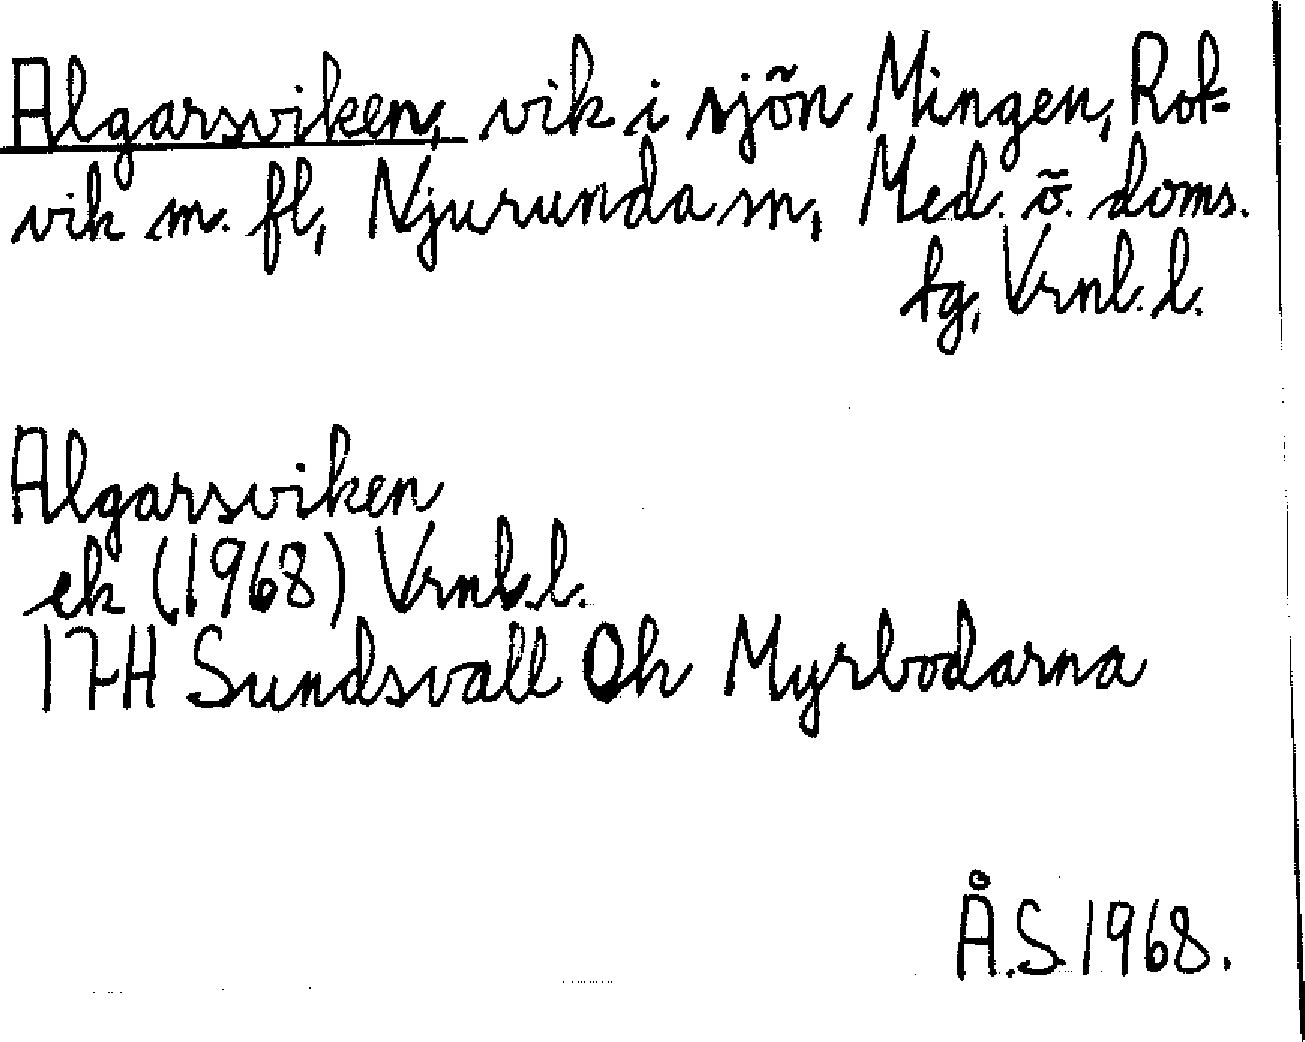 Algarsviken, vik i sjön Mingen, Rot-
vik m. fl, Njurunda sn, Med. ö. doms.
tg, Vrnl. l.
Algarsviken
ek (1968) Vrnl. l.
17H Sundsvall Oh Myrbodarna
Å.S 1968.